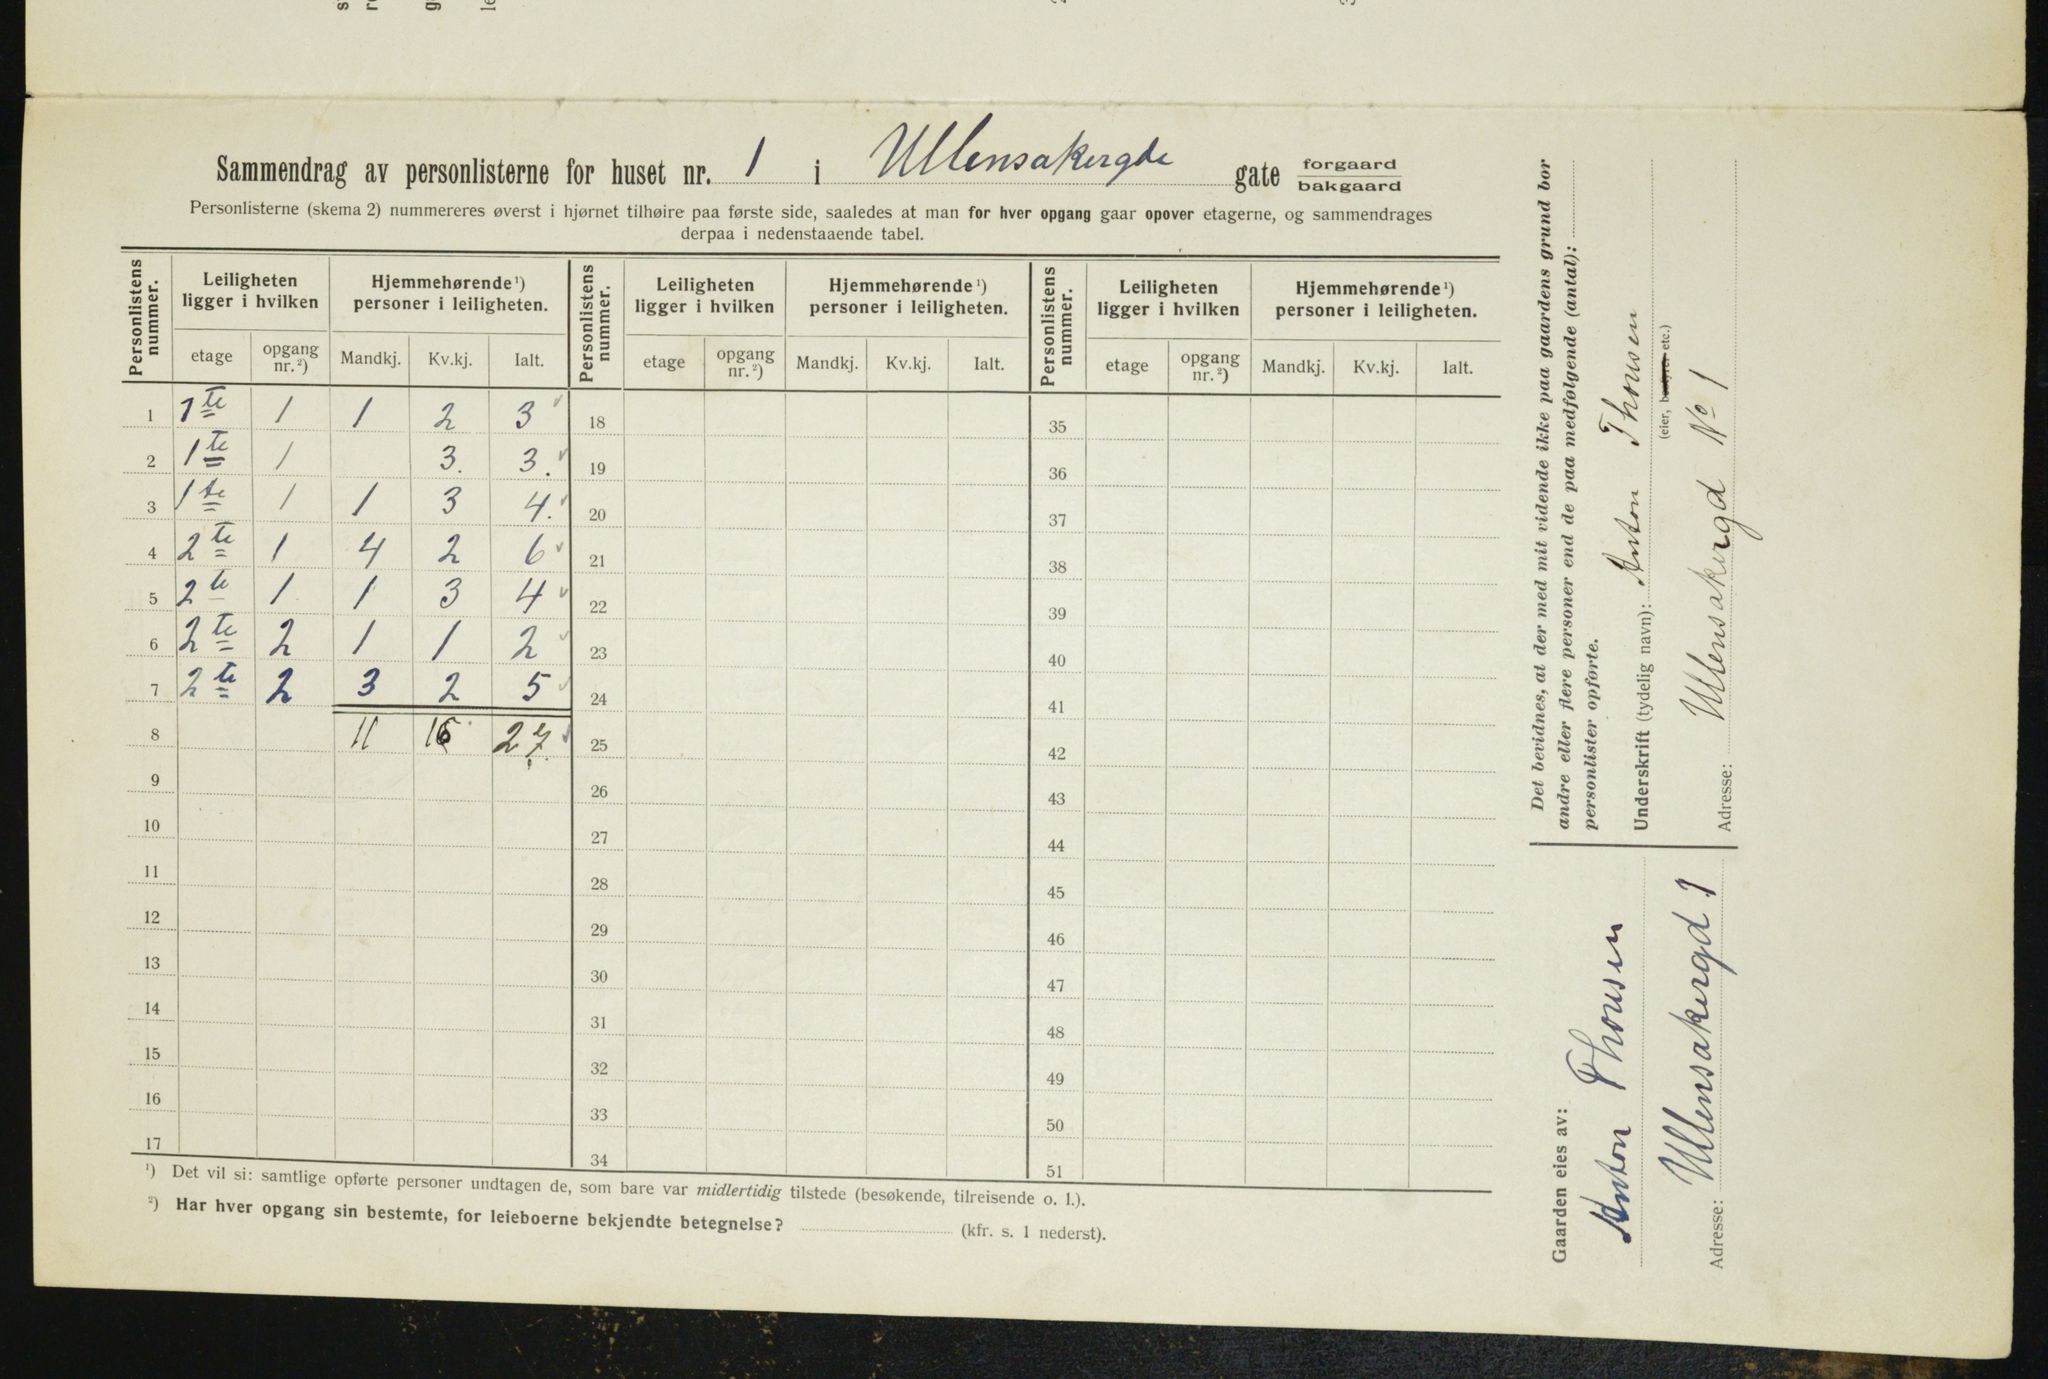 Sammendrag av personlisterne for huset nr. 1 i Ullensakergde gate forgaard bakgaard
Personlisterne (skema 2) nummereres øverst i hjørnet tilhøire paa første side, saaledes at man for hver opgang gaar opover etagerne, og sammendrages
derpaa i nedenstaaende tabel.
Personlistens nummer. Leiligheten ligger i hvilken Hjemmehørende¹) personer i leiligheten. Personlistens nummer. Leiligheten ligger i hvilken Hjemmehørende¹) personer i leiligheten. Personlistens nummer. Leiligheten ligger i hvilken Hjemmehørende¹) personer i leiligheten.
etage opgang nr.²) Mandkj. Kv.kj. Ialt. etage opgang nr.²) Mandkj. Kv.kj. Ialt. etage opgang nr.²) Mandkj. Kv.kj. Ialt.
1 1te 1 1 2 3 18 35
2 1te 1 3. 3. 19 36
3 1te 1 1 3 4. 20 37
4 2te 1 4 2 6 21 38
5 2te 1 1 3 4 22 39
6 2te 2 1 1 2 23 40
7 2te 2 3 2 5 24 41
8 11 16 27 25 42
9 26 43
10 27 44
11 28 45
12 29 46
13 30 47
14 31 48
15 32 49
16 33 50
17 34 51
¹) Det vil si: samtlige opførte personer undtagen de, som bare var midlertidig tilstede (besøkende, tilreisende o. l.).
²) Har hver opgang sin bestemte, for leieboerne bekjendte betegnelse? (kfr. s. 1 nederst).
Det bevidnes, at der med mit vidende ikke paa gaardens grund bor
andre eller flere personer end de paa medfølgende (antal):
personlister opførte.
Underskrift (tydelig navn): Anton Thousen
(eier, bestyrer etc.)
Adresse: Ullensakergd No 1
Gaarden eies av:
Anton Thousen
Adresse: Ullensakergd 1